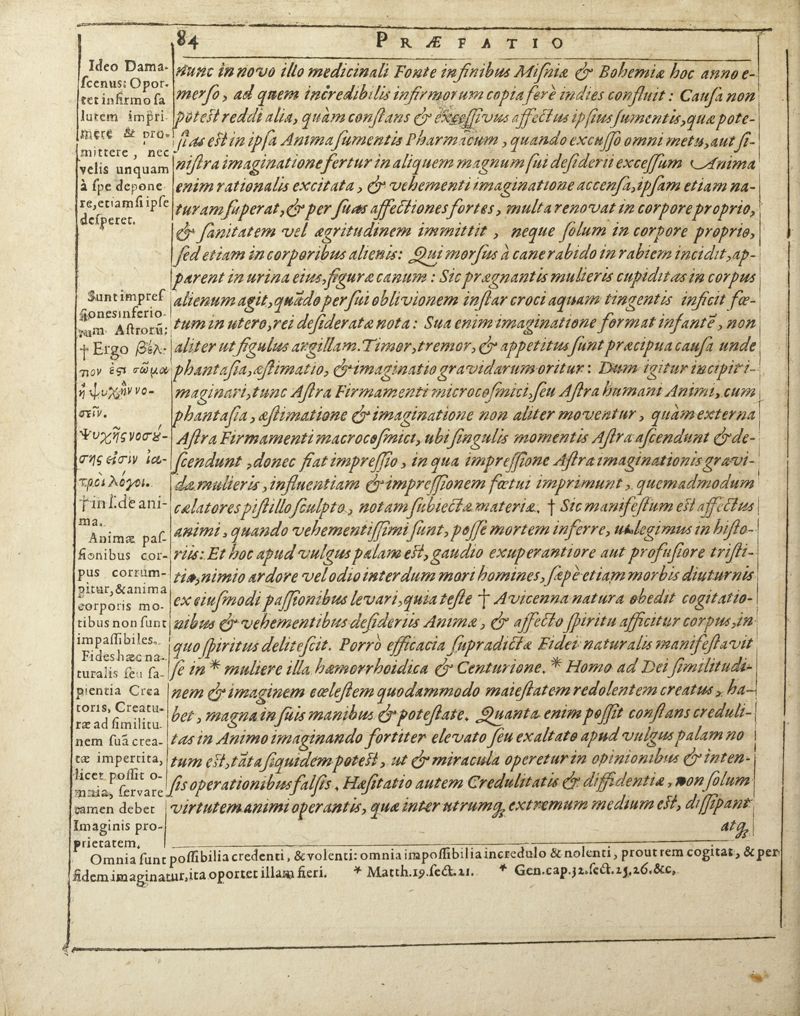 84
PRÆFATIO
Ideo Dama-
scenus: Opor-
tet infirmo sa
lutem impri
mere & pro-
mittere, nec
velis unquam
à spe depone
re, etiamsi ipse
desperet.
Sunt impres
siones inferio-
rum Astrorũ;
† Ergo βέλ-
τιον ἐςι σῶμα
ἢ ψυχὴν νο-
σεῖν.
Ψυχῆς νοσȣ́-
σης εἰσιν ἰα-
τροὶ λόγοι.
† in l. de ani-
ma.
Animæ pas-
sionibus cor-
pus corrum-
pitur, & anima
corporis mo-
tibus non sunt
impassibiles.
Fides hæc na-
turalis seu sa-
pientia Crea
toris, Creatu-
ræ ad similitu-
nem suã crea-
tæ impertita,
licet possit o-
mnia, servare
tamen debet
Imaginis pro-
prietatem.
nunc in novo illo medicinali Fonte in finibus Misniæ & Bohemiæ hoc anno e-
merso, ad quem incredibilis infirmorum copia ferè indies confluit: Causa non
potest reddi alia, quàm constans & excessivus affectus ipsius sumentis, quæ pote-
stas est in ipsa Anima sumentis Pharmacum, quando excusso omni metu, aut si-
nistra imaginatione fertur in aliquem magnum sui desiderii excessum Anima
enim rationalis excitata, & vehementi imaginatione accensa, ipsam etiam na-
turam superat, & per suas affectiones fortes, multa renovat in corpore proprio,
& sanitatem vel ægritudinem immittit, neque solum in corpore proprio,
sed etiam in corporibus alienis: Qui morsus à cane rabido in rabiem incidit, ap-
parent in urina eius, figuræ canum: Sic prægnantis mulieris cupiditas in corpus
alienum agit, quãdo per sui oblivionem instar croci aquam tingentis inficit fœ-
tum in utero, rei desideratæ nota: Sua enim imaginatione format infantẽ, non
aliter ut figulus argillam. Timor, tremor, & appetitus sunt præcipua causa unde
phantasia, æstimatio, & imaginatio gravidarum oritur: Dum igitur incipit i-
maginari, tunc Astra Firmamenti microcosmici, seu Astra humani Animi, cum
phantasia, æstimatione & imaginatione non aliter moventur, quàm externa
Astra Firmamenti macrocosmici, ubi singulis momentis Astra ascendunt & de-
scendunt, donec fiat impressio, in qua impressione Astra imaginationis gravi-
dæ mulieris, influentiam & impressionem fœtui imprimunt, quemadmodum
cælatores pistillo sculpto, notam subiectæ materiæ. † Sic manifestum est affectus
animi, quando vehementissimi sunt, posse mortem inferre, ut legimus in histo-
riis: Et hoc apud vulgus palam est, gaudio exuperantiore aut profusiore tristi-
tia, nimio ardore vel odio interdum mori homines, sæpè etiam morbis diuturnis
ex eiusmodi passionibus levari, quia teste † Avicenna natura obedit cogitatio-
nibus & vehementibus desideriis Animæ, & affecto spiritu afficitur corpus, in
quo spiritus delitescit. Porrò efficacia supradictæ Fidei naturalis manifestavit
se in * muliere illa hæmorrhoidica & Centurione. * Homo ad Dei similitudi-
nem & imaginem cœlestem quodammodo maiestatem redolentem creatus, ha-
bet, magna in suis manibus & potestate. Quanta enim possit constans creduli-
tas in Animo imaginando fortiter elevato seu exaltato apud vulgus palam no
tum est, tãta siquidem potest, ut & miracula operetur in opinionibus & inten-
sis operationibus falsis. Hæsitatio autem Credulitatis & diffidentiæ, non solum
virtutem animi operantis, quæ inter utrumq; extremum medium est, dissipant
atq;
Omnia sunt possibilia credenti, & volenti: omnia impossibilia incredulo & nolenti, prout rem cogitat, & per
fidem imaginatur, ita oportet illam fieri. * Matth. 19. sect. 21. * Gen. cap. 32. sect. 25, 26. &c.